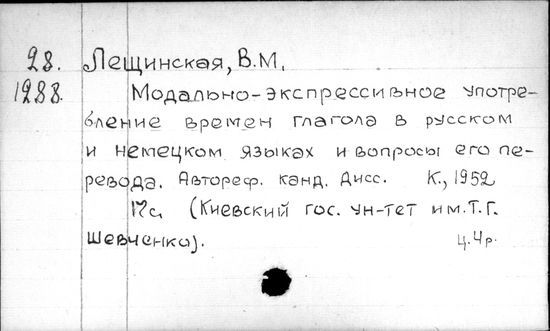 28. Лещинская, В.М.
1288. Модально-экспрессивное употре-
бление времен глагола в русском
и немецком языках и вопросы его пе-
ревода. Автореф. канд. дисс. К., 1952
17с. (Киевский гос. ун-тет им. Т.Г.
Шевченко). ц. 4р.